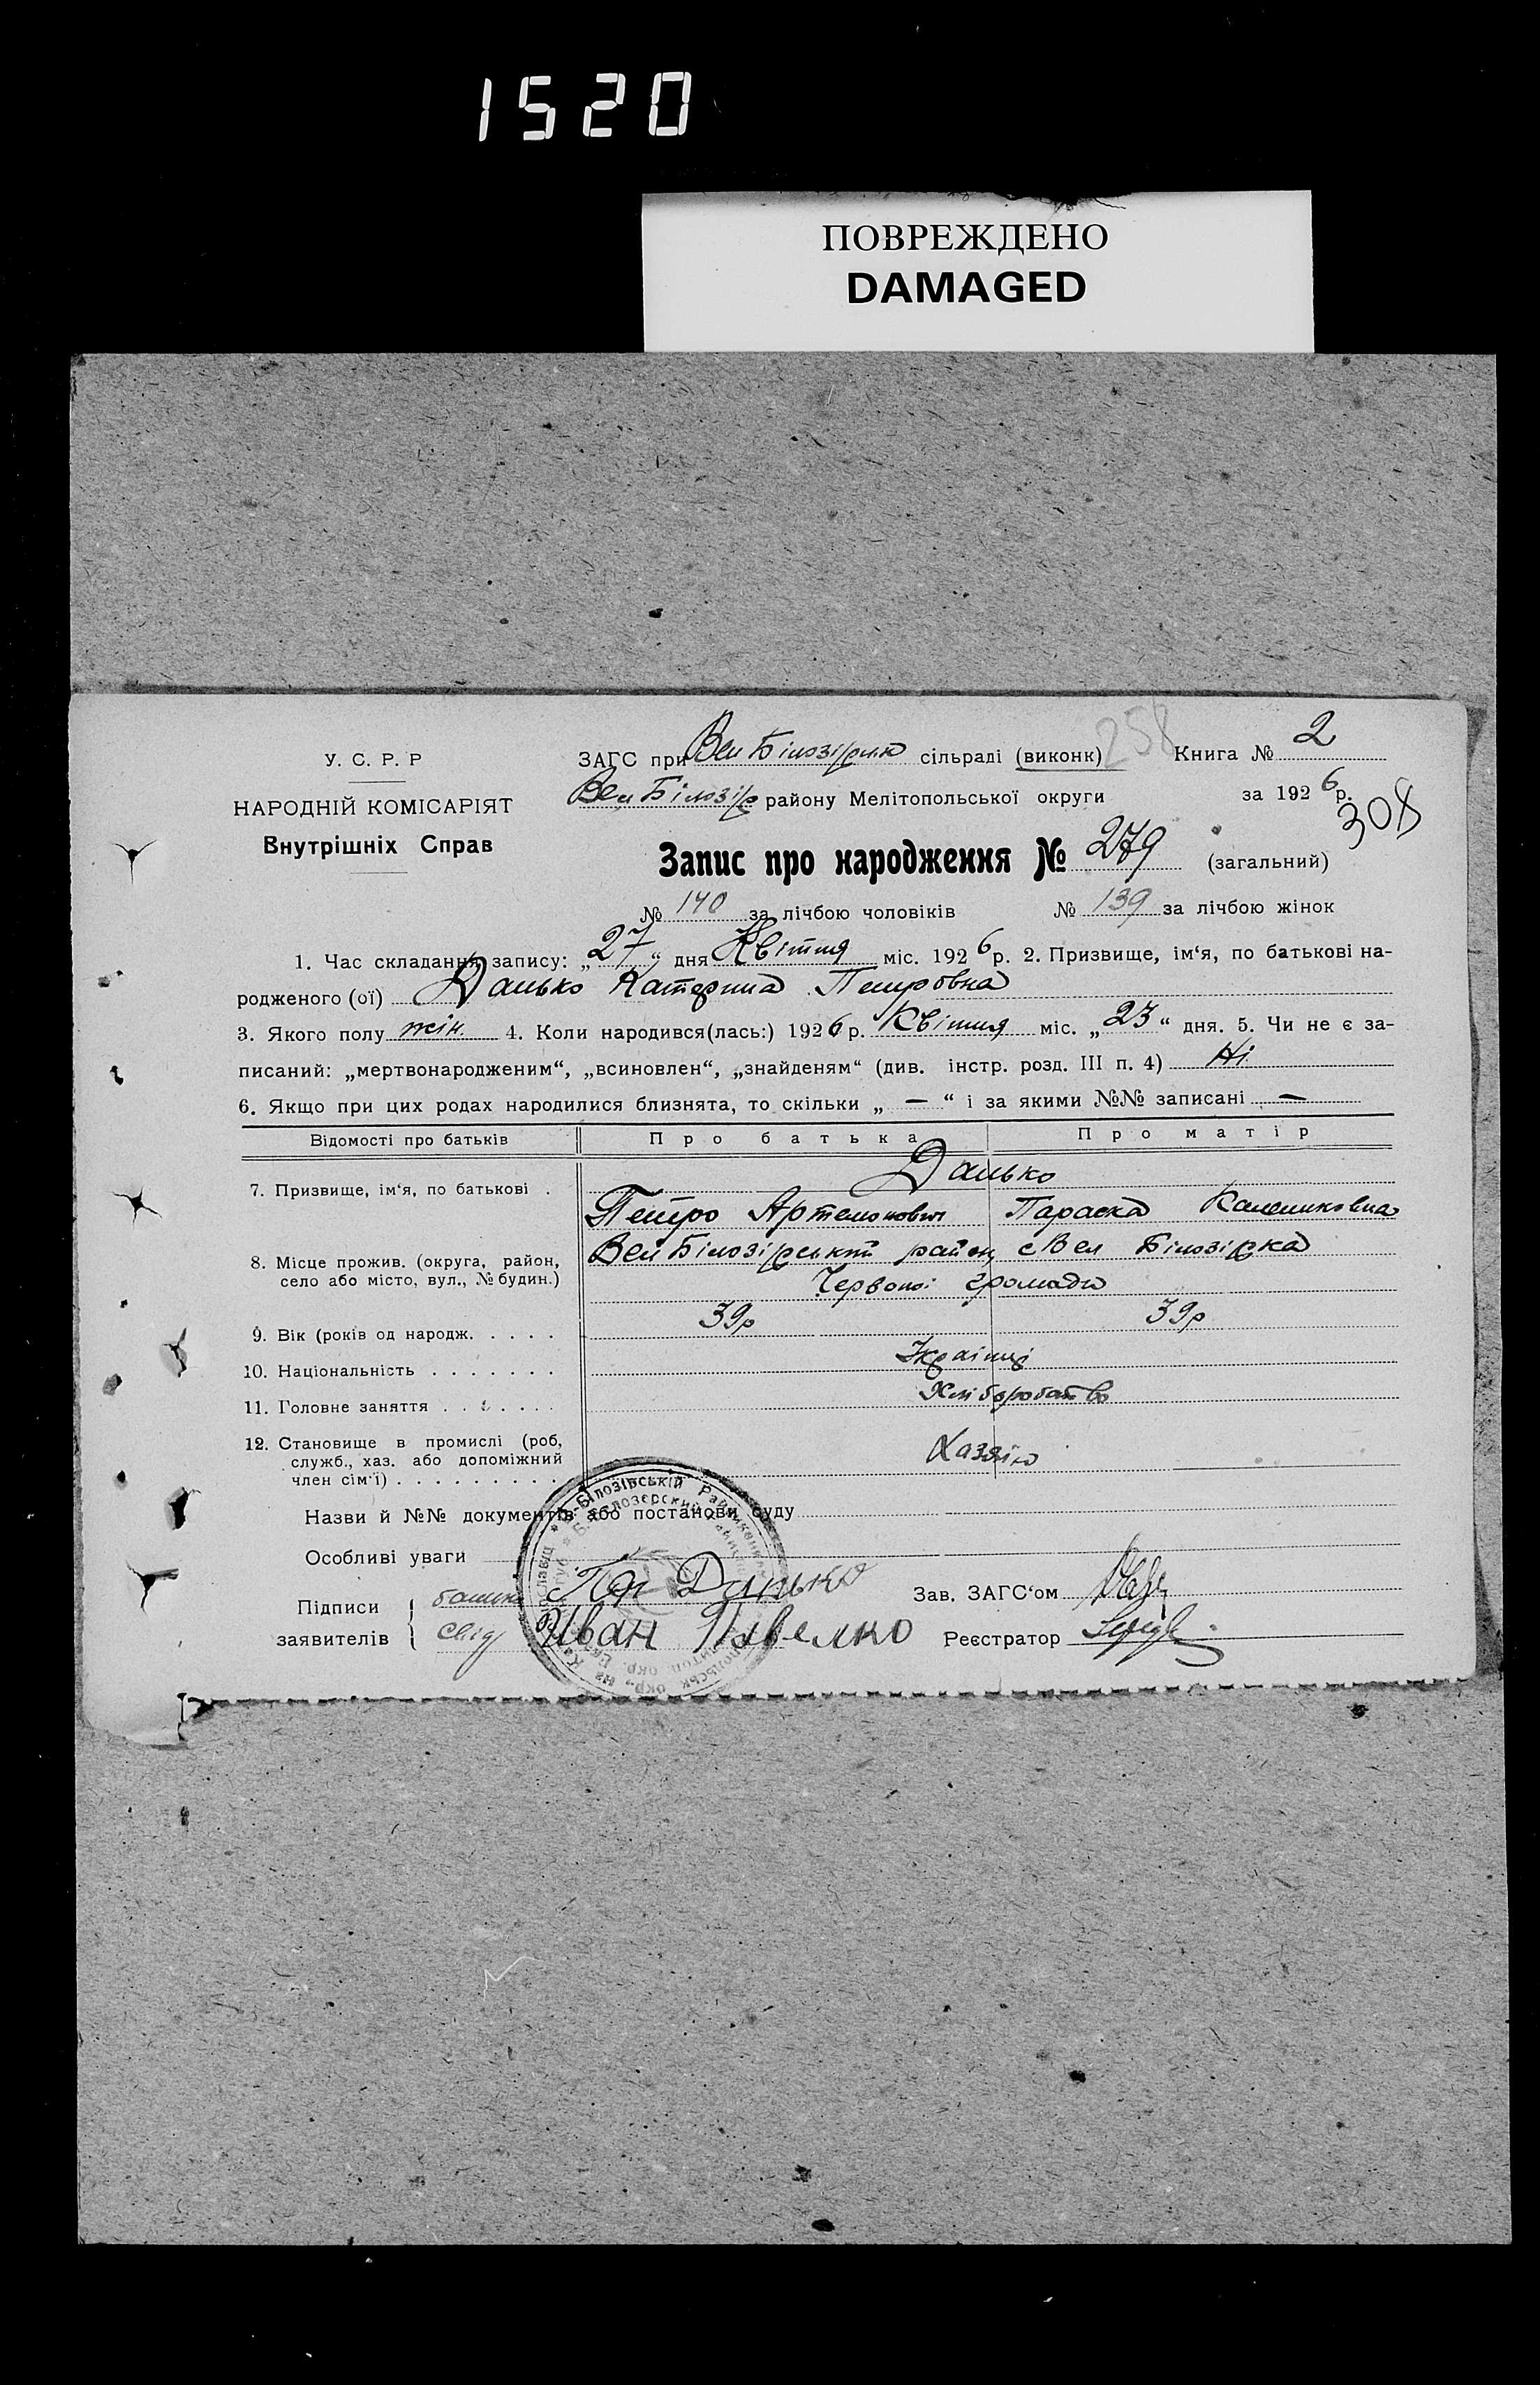 1520
ПОВРЕЖДЕНО
DAMAGED
У. С. Р. Р
НАРОДНІЙ КОМІСАРІЯТ
Внутрішніх Справ
ЗАГС при Вел Білозірцю сільраді (виконк) 258 Книга № 2
Вел Білозір району Мелітопольської округи за 1926 р.
308
Запис про народження № 279 (загальний)
№ 140 за лічбою чоловіків № 139 за лічбою жінок
1. Час складання запису: „27“ дня Квітня міс. 1926 р. 2. Призвище, ім‘я, по батькові на-
родженого (ої) Данько Катерина Петровна
3. Якого полу жін. 4. Коли народився(лась:) 1926 р. Квітня міс. „23“ дня. 5. Чи не є за-
писаний: „мертвонародженим“, „всиновлен“, „знайденям“ (див. інстр. розд. III п. 4) Ні
6. Якщо при цих родах народилися близнята, то скільки „ — “ і за якими №№ записані —
Відомості про батьків Про батька Про матір
Данько
7. Призвище, ім‘я, по батькові .
Петро Артемонович Параска Калениковна
8. Місце прожив. (округа, район, село або місто, вул., № будин.)
Вел Білозірський район, с Вел Білозірка
Червоної громади
9. Вік (років од народж. . . . . 39р 39р
10. Національність . . . . . . . Українці
11. Головне заняття . . . . . . . Хліборобство
12. Становище в промислі (роб,
служб., хаз. або допоміжний
член сім‘ї) . . . . . . . . . Хазяїн
Назви й №№ документів або постанови суду
Особливі уваги
Підписи
заявителів
батько Данько Зав. ЗАГС‘ом
свід Иван Павелко Реєстратор